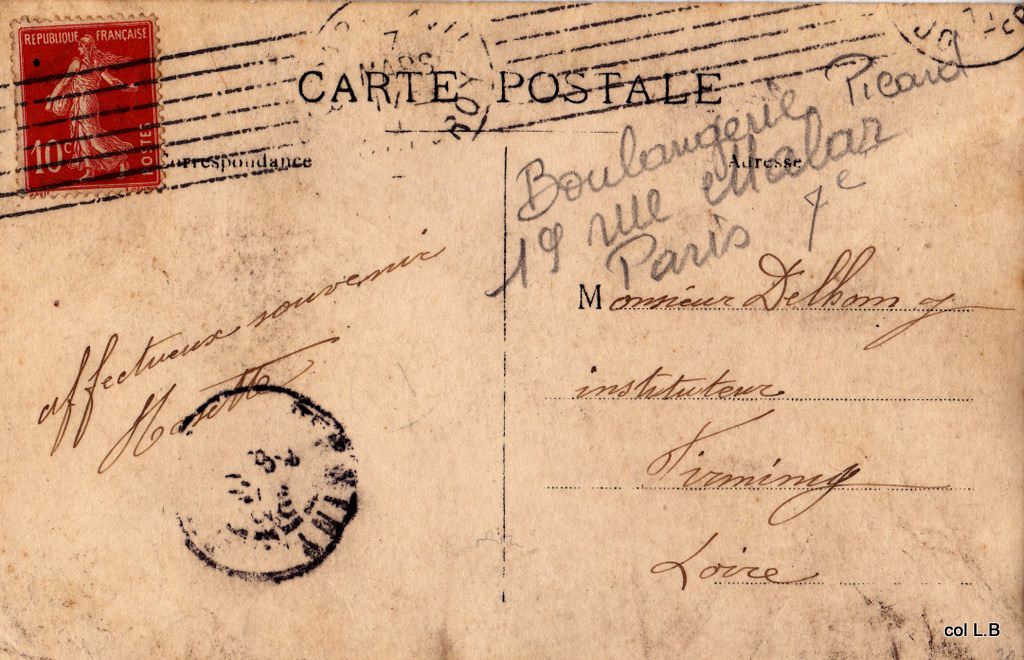 RÉPUBLIQUE FRANÇAISE
10c
POSTES
7
MARS
CARTE POSTALE
Correspondance
Adresse
Boulangerie Picard
19 rue Malar
Paris 7e
affectueux souvenir
Monsieur Delhomy
instituteur
Firminy
Loire
FIRMINY
col L.B